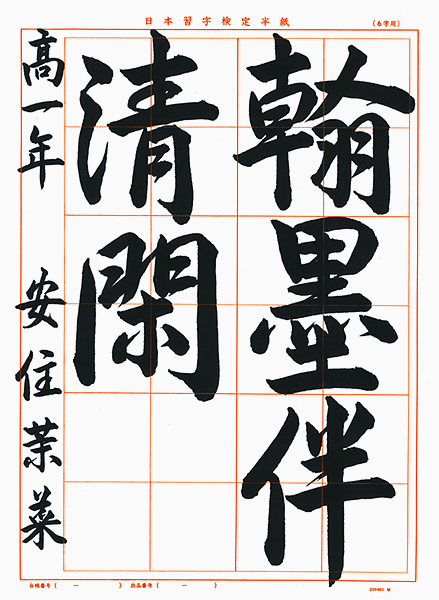 日本習字検定半紙
(6字用)
翰墨伴
清閑
高一年 安住茉菜
会員番号( ー )
出品番号( ー )